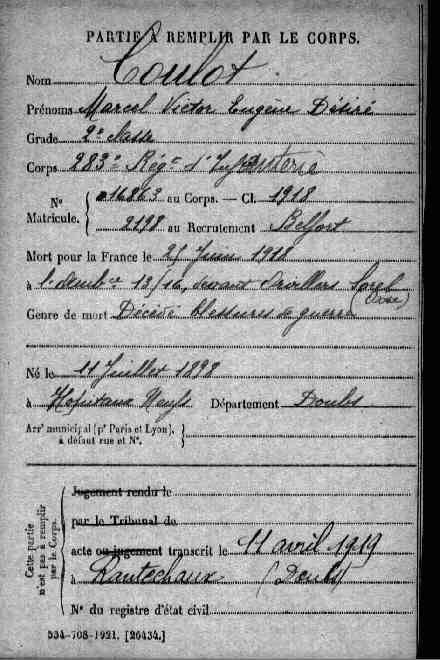 PARTIE À REMPLIR PAR LE CORPS.
Nom Coulot
Prénoms Marcel Victor Eugène Désiré
Grade 2e classe
Corps 283e Régt d'Infanterie
No Matricule.
16863 au Corps. — Cl. 1918
2198 au Recrutement Belfort
Mort pour la France le Juin 1918
à l'Ambce 13/16, devant Orvillers Sorel
(Oise)
Genre de mort Décédé blessures de guerre
Né le 11 Juillet 1898
à Hôpitaux Neufs Département Doubs
Arrt municipal (pr Paris et Lyon),
à défaut rue et No.
Cette partie
n'est pas à remplir
par le Corps.
Jugement rendu le
par le Tribunal de
acte ou jugement transcrit le 11 avril 1919
à Rantechaux (Doubs)
No du registre d'état civil
534-708-1921. [26434.]